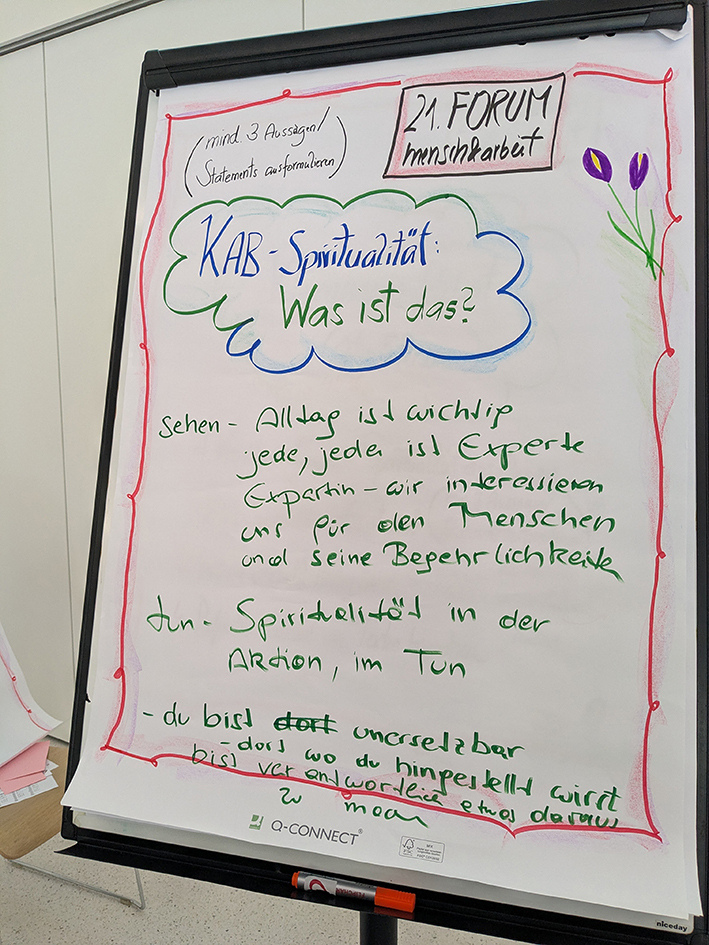 (mind. 3 Aussagen/
Statements ausformulieren)
21. FORUM
mensch&arbeit
KAB-Spiritualität:
Was ist das?
sehen - Alltag ist wichtig
jede, jeder ist Experte
Expertin - wir interessieren
uns für den Menschen
und seine Begehrlichkeite
tun - Spiritualität in der
Aktion, im Tun
- du bist dort unersetzbar
- dort wo du hingestellt wirst
bist verantwortlich etwas daraus
zu
Q-CONNECT®
FSC
niceday